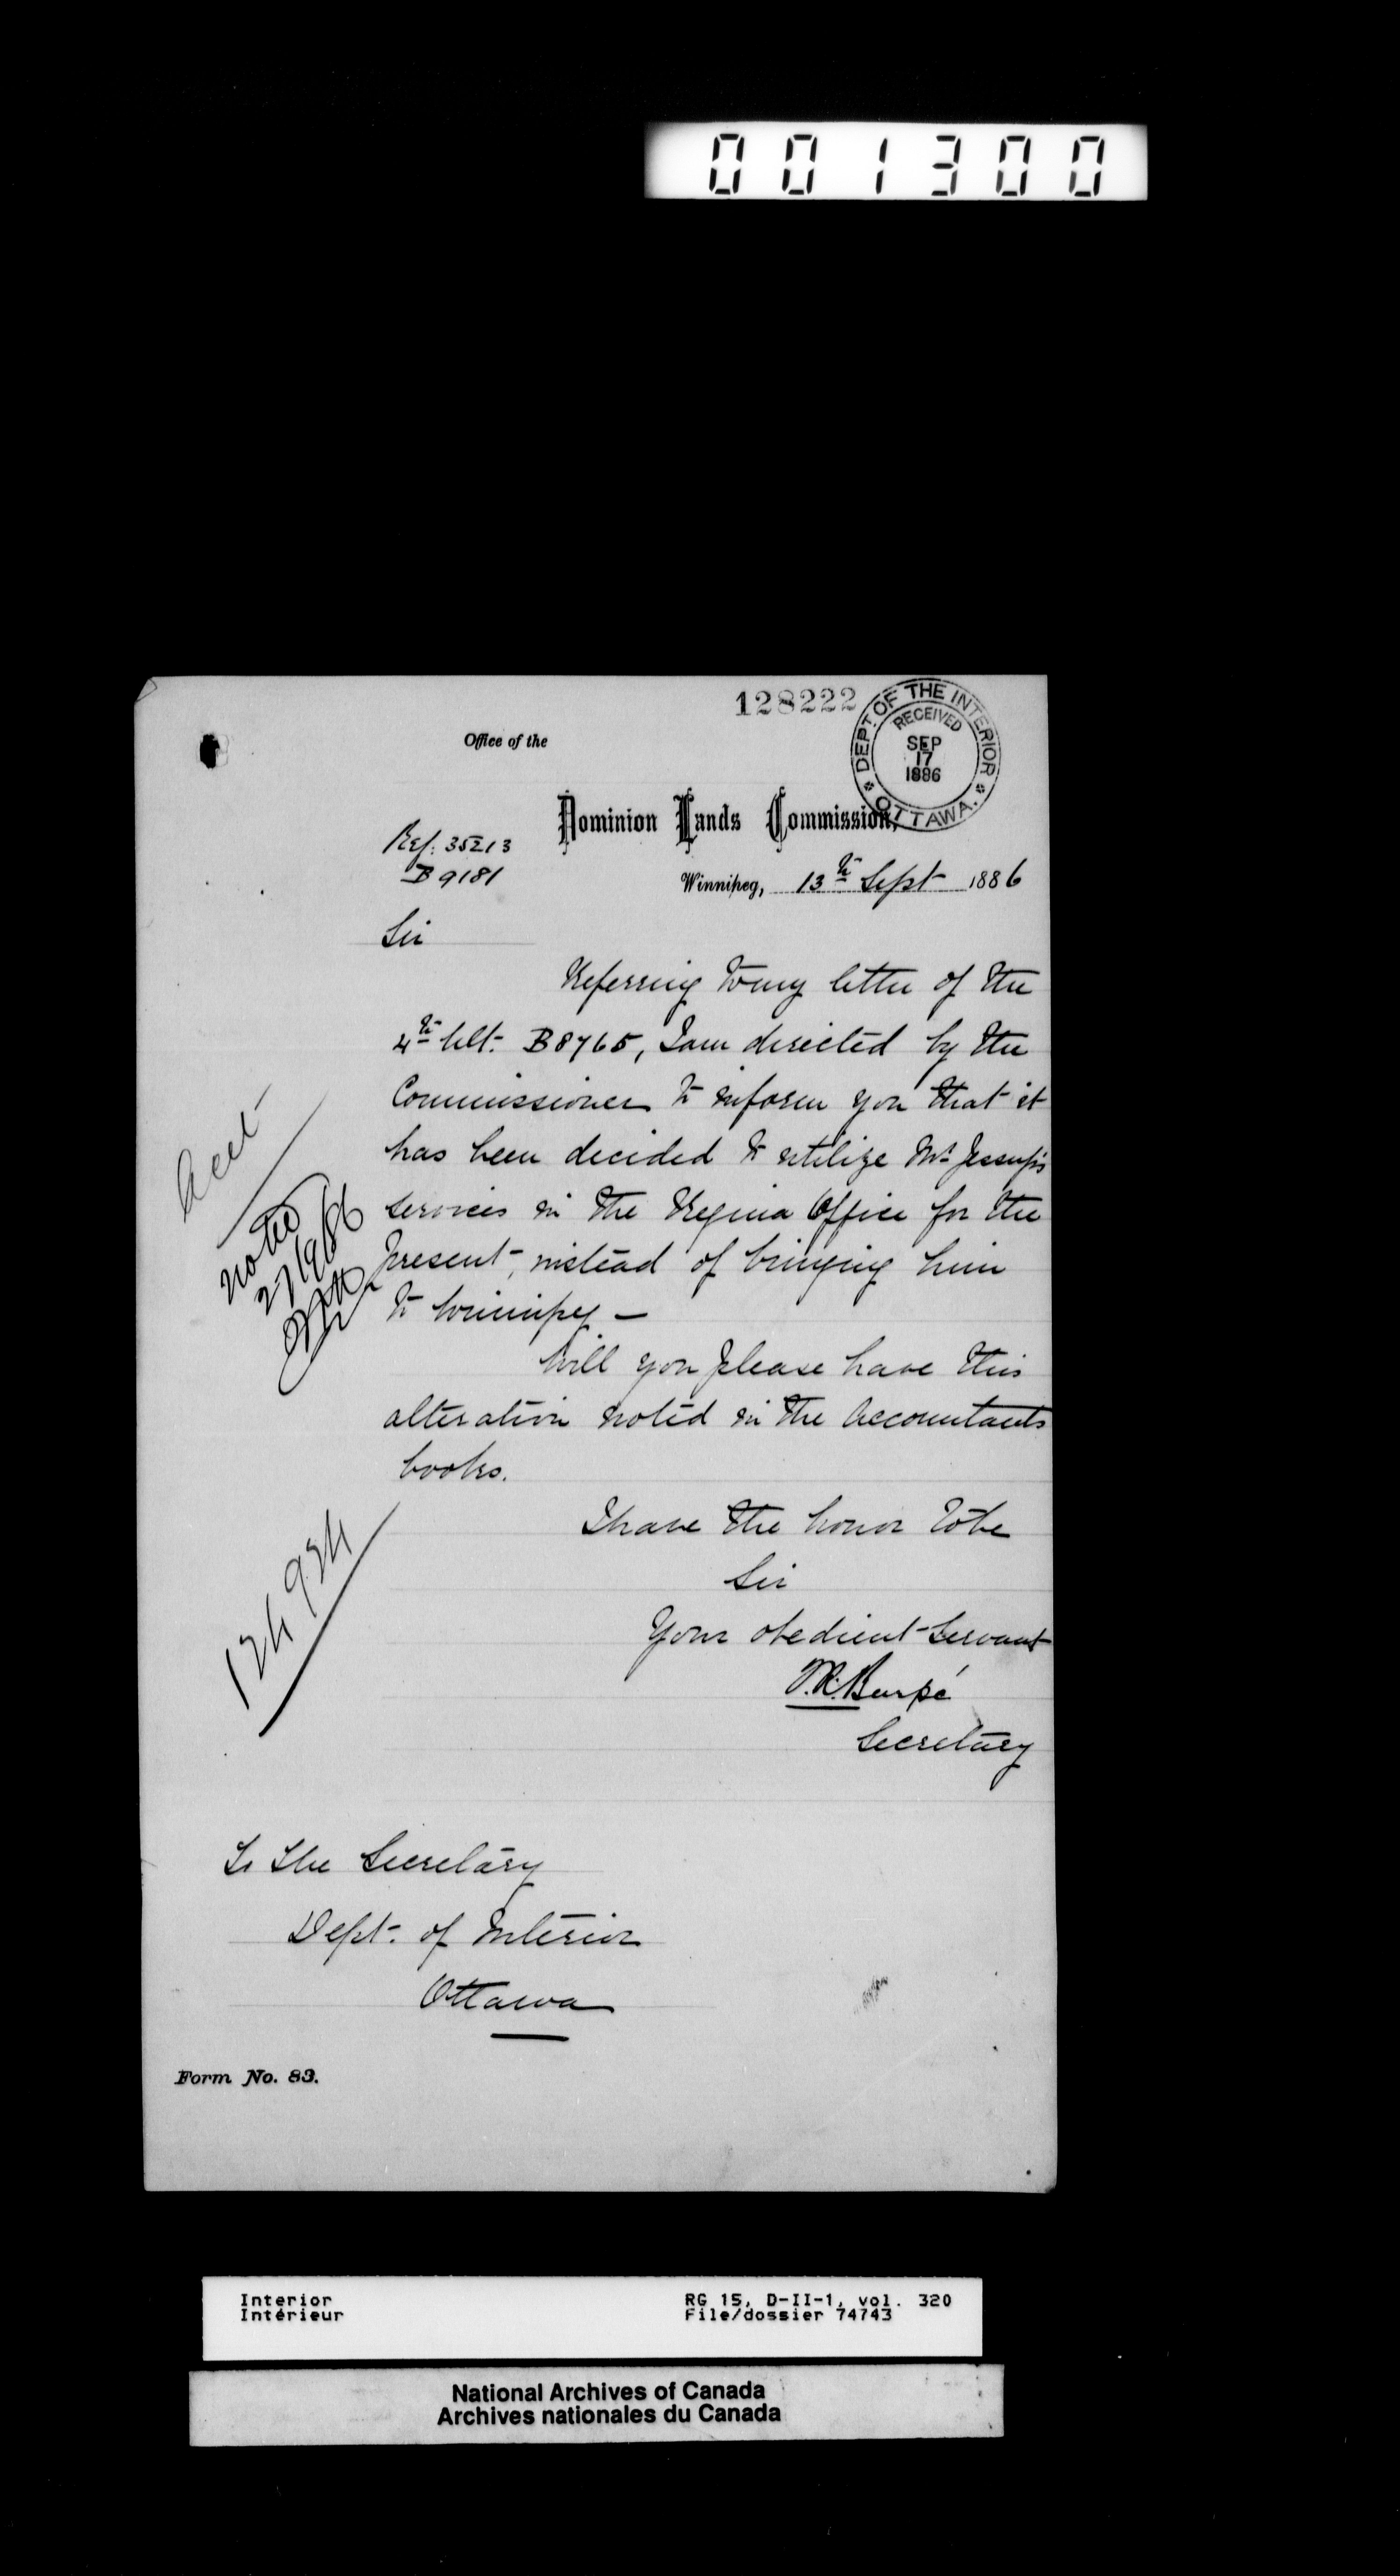 001300
128222
DEPT. OF THE INTERIOR
RECEIVED
SEP
17
1886
OTTAWA.
Office of the
Dominion Lands Commission,
Ref: 35213
B 9181
Winnipeg, 13th Sept 1886
Sir
Referring to my letter of the
4th Ult. B8765, I am directed by the
Commissioner to inform you that it
has been decided to utilize Mr Jessup's
services in the Regina Office for the
present, instead of bringing him
to Winnipeg —
Will you please have this
alteration noted in the Accountants
books.
I have the honor to be
Sir
Your obedient Servant
Burpé
Secretary
Acct
noted
27/9/86
124924
To The Secretary
Dept. of Interior
Ottawa
Form No. 83.
Interior
Intérieur
RG 15, D-II-1, vol. 320
File/dossier 74743
National Archives of Canada
Archives nationales du Canada